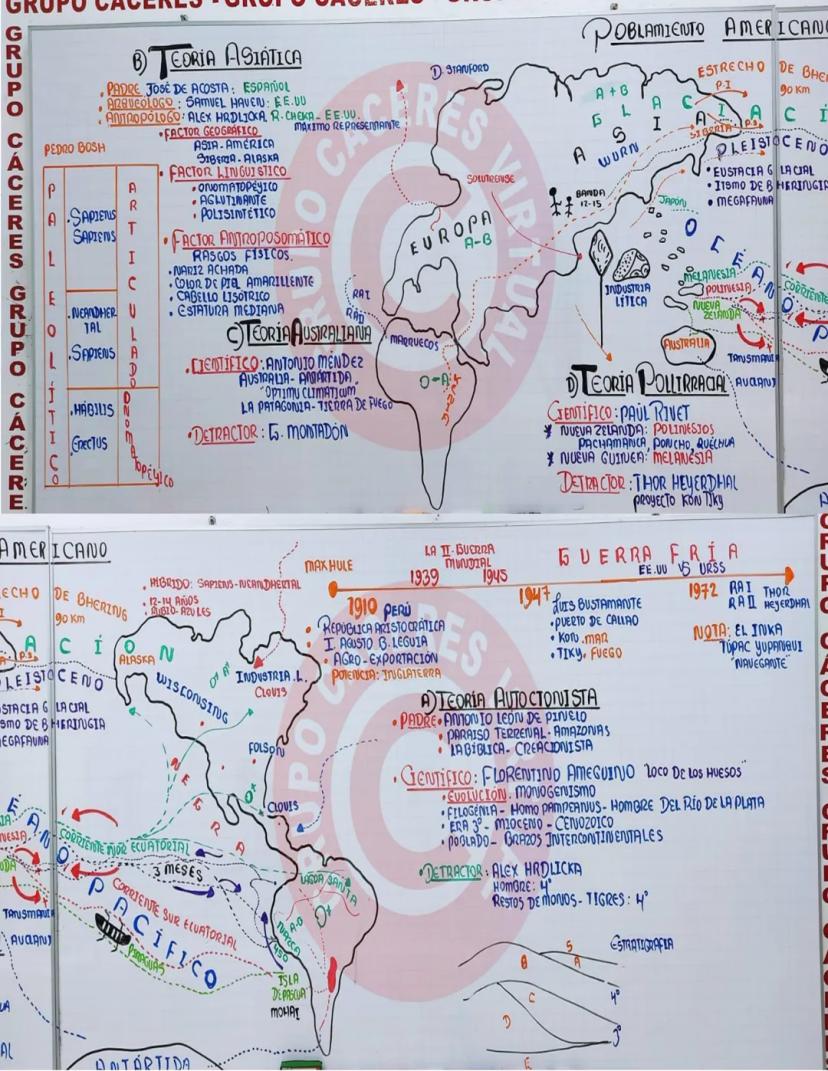 GRUPO CÁCERES - GRUPO CÁCERES
GRUPO CÁCERES GRUPO CÁCERES
POBLAMIENTO AMERICANO
B) TEORÍA ASIÁTICA
• PADRE JOSÉ DE ACOSTA: ESPAÑOL
• ARQUEÓLOGO: SAMUEL HAVEN: EE.UU
• ANTROPÓLOGO: ALEX HRDLICKA R. CHEKA - EE.UU.
MÁXIMO REPRESENTANTE
• FACTOR GEOGRÁFICO
ASIA-AMÉRICA
SIBERIA-ALASKA
• FACTOR LINGUÍSTICO
• ONOMATOPÉYICO
• AGLUTINANTE
• POLISINTÉTICO
• FACTOR ANTROPOSOMÁTICO
RASGOS FÍSICOS.
• NARIZ ACHADA
• COLOR DE PIEL AMARILLENTE
• CABELLO LISÓTRICO
• ESTATURA MEDIANA
PEDRO BOSH
PALEOLÍTICO
• SAPIENS
SAPIENS
• NEANDHER
TAL
• SAPIENS
• HÁBILIS
ERECTUS
ARTICULADO
ONOMATOPÉYICO
C) TEORÍA AUSTRALIANA
• CIENTÍFICO: ANTONIO MÉNDEZ
AUSTRALIA - ANTÁRTIDA
"OPTIMU CLIMATICUM
LA PATAGONIA-TIERRA DE FUEGO
• DETRACTOR: G. MONTADÓN
D. STANFORD
SOLUTRENSE
EUROPA
A-B
RAI
RAII
MARRUECOS
O-A
A+B
GLACI
ASIA
WURN
SIBERIA
BANDA
12-15
INDUSTRIA
LÍTICA
JAPÓN
ESTRECHO DE BHERING
90 Km
P.I
P.S
PLEISTOCENO
• EUSTACIA GLACIAL
• ITSMO DE BHERINGIA
• MEGAFAUNA
OCÉANO
MELANESIA
POLINESIA
NUEVA
ZELANDA
CORRIENTE
AUSTRALIA
TASMANIA
D) TEORÍA POLIRRACIAL
CIENTÍFICO: PAUL RIVET
* NUEVA ZELANDA: POLINESIOS
PACHAMANCA, PONCHO, QUÉCHUA
* NUEVA GUINEA: MELANESIA
DETRACTOR: THOR HEYERDHAL
PROYECTO KON TIKY
AMERICANO
ECHO DE BHERING
90 Km
ACIÓN
P.S
PLEISTOCENO
STACIA GLACIAL
SMO DE BHERINGIA
EGAFAUNA
• HÍBRIDO: SAPIENS-NEANDHERTAL
• 12-14 AÑOS
• RUBIO-AZULES
ALASKA
WISCONSING
INDUSTRIA L.
CLOVIS
FOLSON
CLOVIS
NEGRA
CORRIENTE NOR ECUATORIAL
3 MESES
CORRIENTE SUR ECUATORIAL
OCÉANO PACÍFICO
PIRAGUAS
LAGOA SANTA
ISLA
DE PASCUA
MOHAI
ANTÁRTIDA
MAX HULE
LA II-GUERRA
MUNDIAL
1939 1945
GUERRA FRÍA
EE.UU VS URSS
1910 PERÚ
• REPÚBLICA ARISTOCRÁTICA
• I. AGUSTO B. LEGUÍA
• AGRO-EXPORTACIÓN
POTENCIA: INGLATERRA
1947
• LUIS BUSTAMANTE
• PUERTO DE CALLAO
• KON. MAR
• TIKY. FUEGO
1972 RAI THOR
RAII HEYERDHAL
NOTA: EL INKA
TÚPAC YUPANQUI
"NAVEGANTE"
A) TEORÍA AUTOCTONISTA
• PADRE • ANTONIO LEÓN DE PINELO
• PARAISO TERRENAL - AMAZONAS
• LA BÍBLICA - CREACIONISTA
• CIENTÍFICO: FLORENTINO AMEGUINO "LOCO DE LOS HUESOS"
• EVOLUCIÓN. MONOGENISMO
• FILOGÉNIA - HOMO PAMPEANUS - HOMBRE DEL RÍO DE LA PLATA
• ERA 3° - MIOCENO - CENOZOICO
• POBLADO - BRAZOS INTERCONTINENTALES
• DETRACTOR: ALEX HRDLICKA
HOMBRE: 4°
RESTOS DE MONOS - TIGRES: 4°
ESTRATIGRAFIA
S
B A
C
4°
D
3°
E